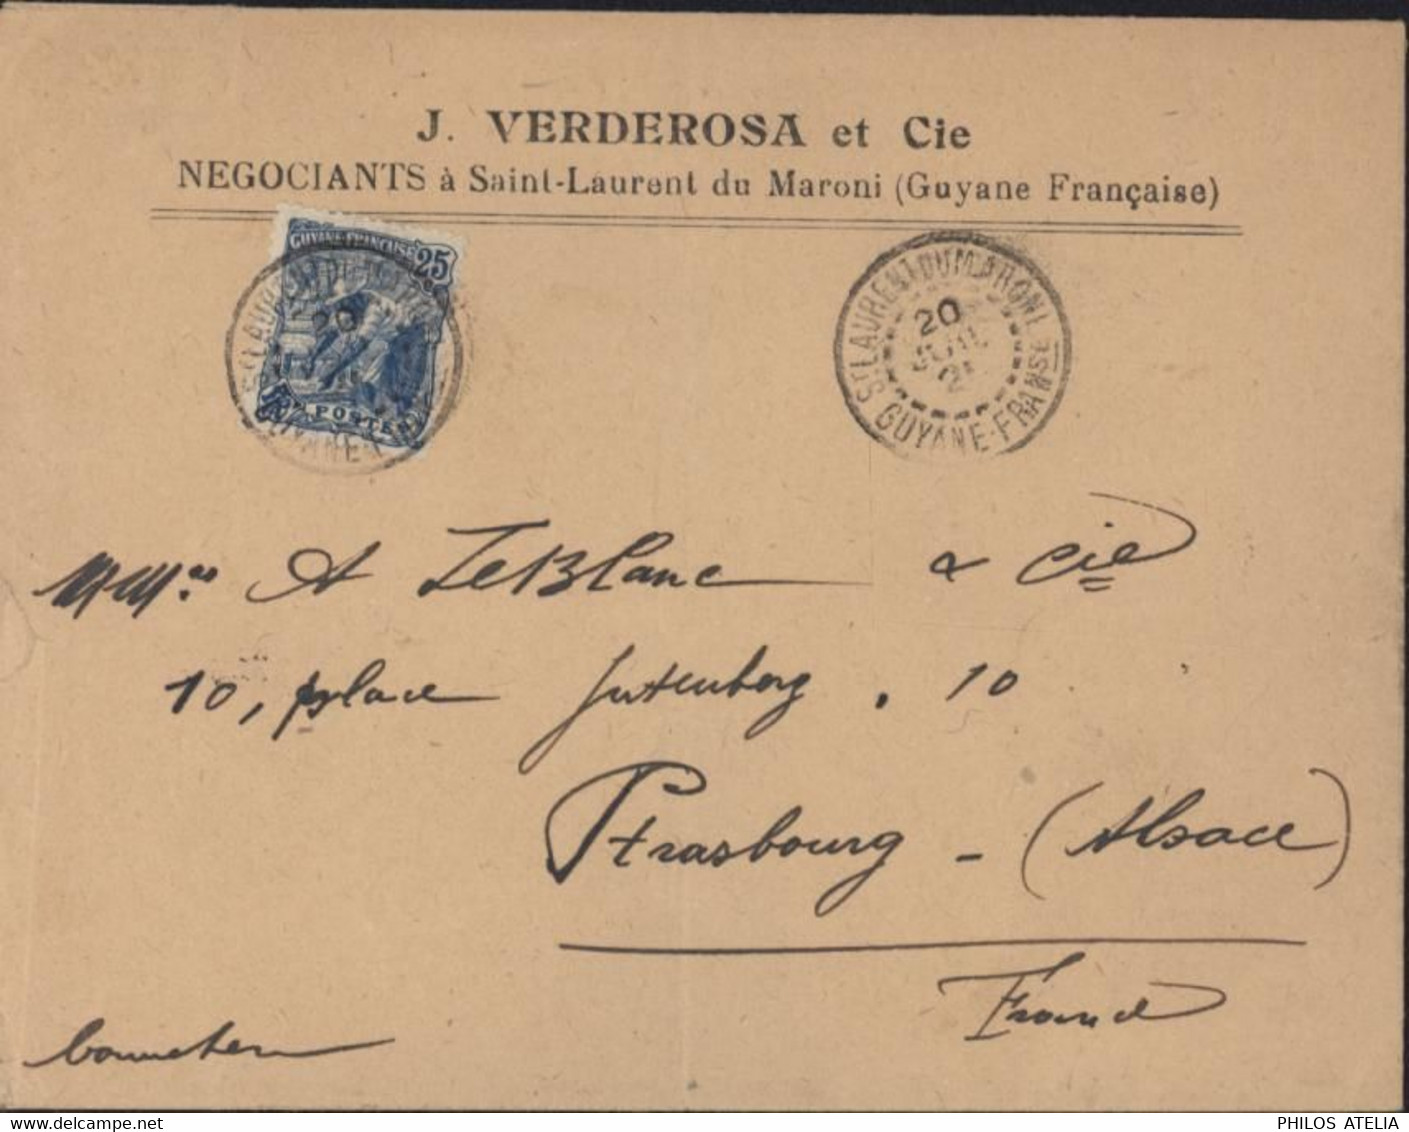 J. VERDEROSA et Cie
NEGOCIANTS à Saint-Laurent du Maroni (Guyane Française)
GUYANE FRANÇAISE 25
POSTES
ST LAURENT DU MARONI
20
GUYANE
ST LAURENT-DU-MARONI
20
JUIL
21
GUYANE-FRANSE
MMrs A LeBlanc & Cie
10, place Gutenberg, 10
Strasbourg - (Alsace)
France
PHILOS ATELIA